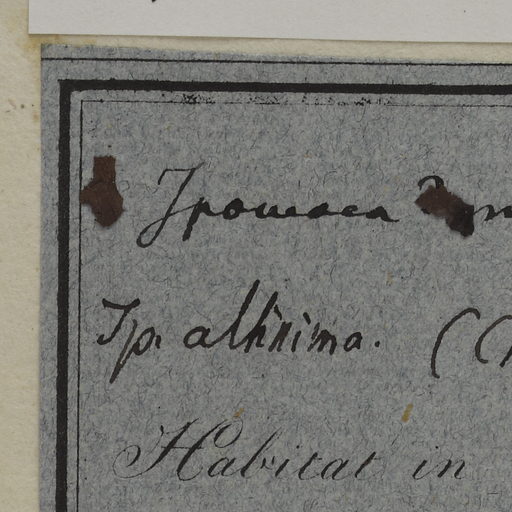 Ipomoea
Ip. altissima. (
Habitat in